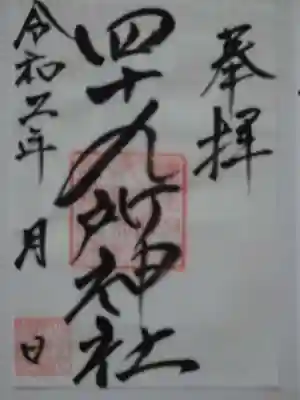 奉拝
四十九所神社
令和二年 月 日